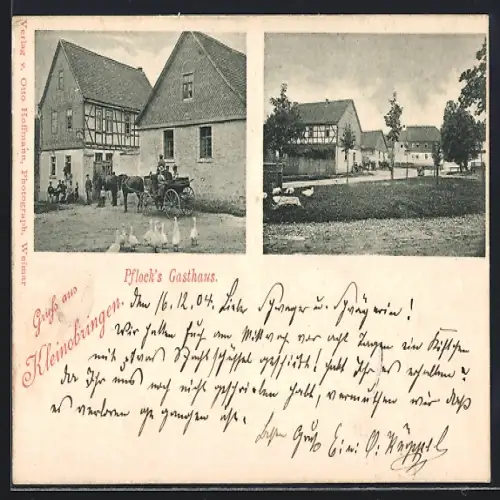 Verlag v. Otto Hoffmann, Photograph, Weimar
Pflock's Gasthaus.
Gruß aus
Kleinobringen.
Den 16.12.04. Liebe Schwager u. Schwägerin!
Wir haben Euch am Mittwoch vor acht Tagen ein Kistchen
mit etwas geschickt! habt Ihr es erhalten?
da Ihr uns noch nicht geschrieben habt, vermuthen wir daß
es verloren gegangen ist.
Besten Gruß